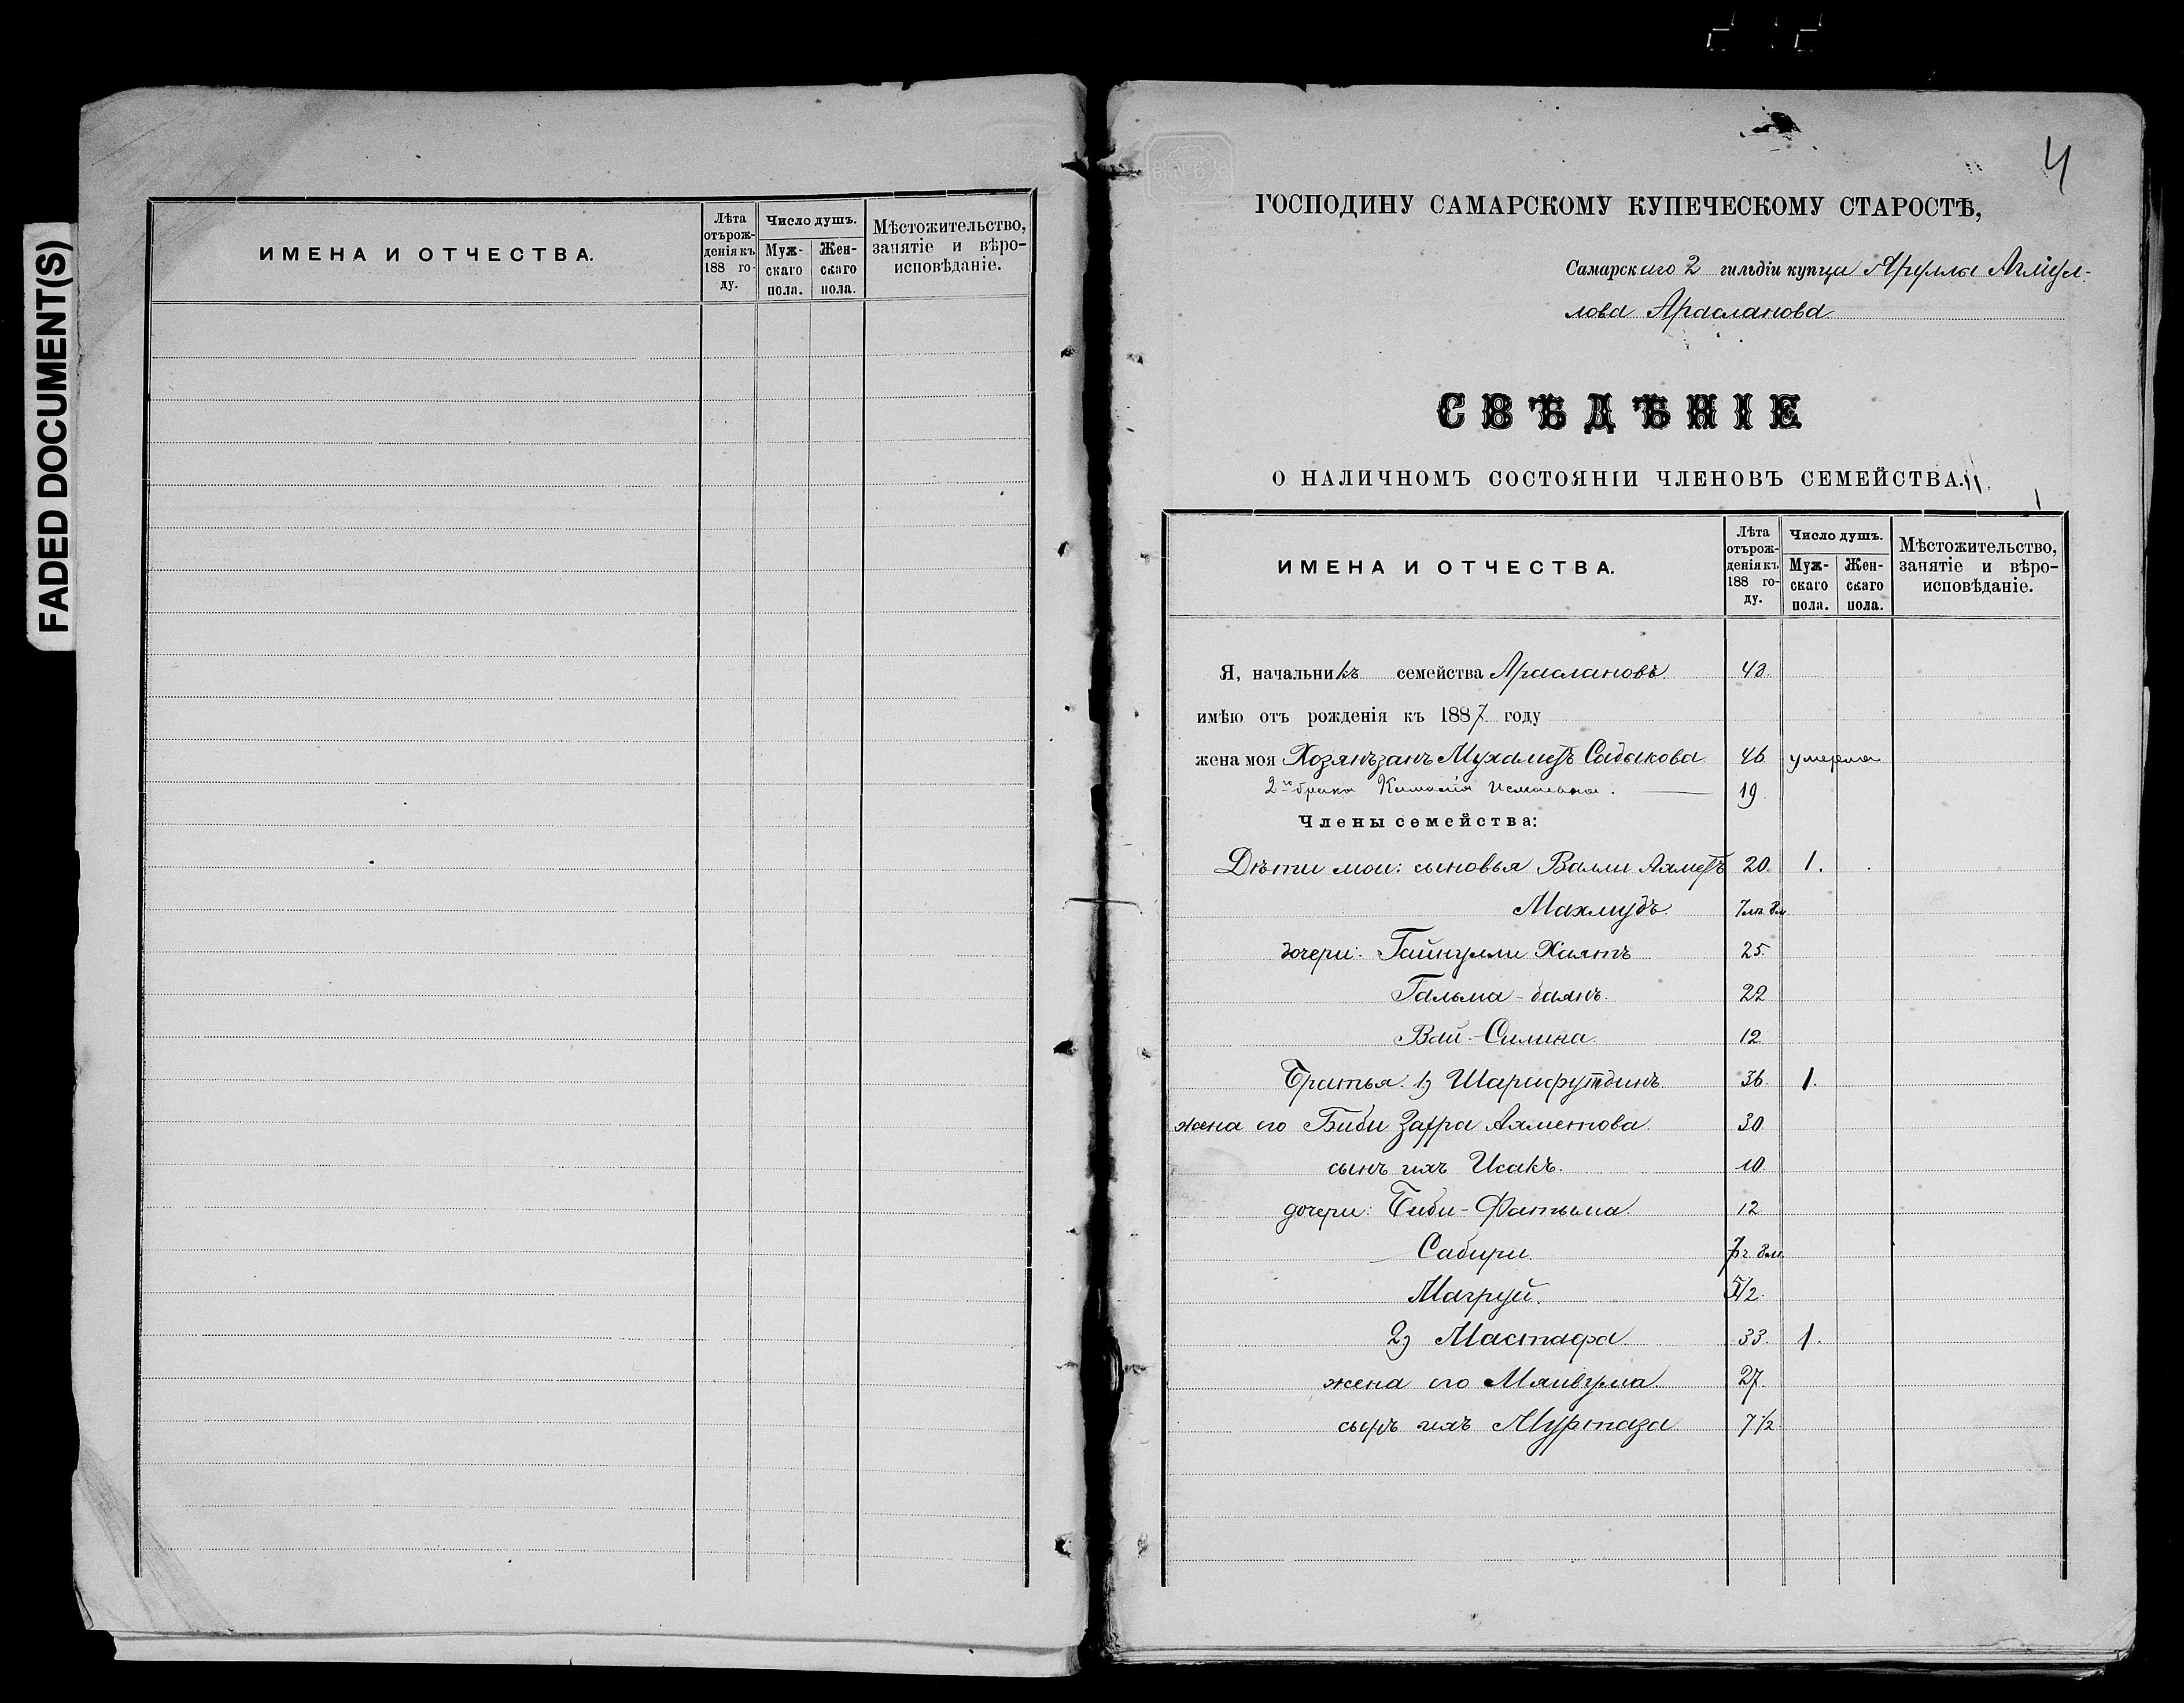 FADED DOCUMENT(S)
ИМЕНА И ОТЧЕСТВА.
Лѣта отърожденія къ 188 году.
Число душъ.
Мужскаго пола.
Женскаго пола.
Мѣстожительство, занятіе и вѣроисповѣданіе.
4
ГОСПОДИНУ САМАРСКОМУ КУПЕЧЕСКОМУ СТАРОСТѢ,
Самарскаго 2 гильдіи купца
Арасланова
СВѢДѢНІЕ
О НАЛИЧНОМЪ СОСТОЯНІИ ЧЛЕНОВЪ СЕМЕЙСТВА.
ИМЕНА И ОТЧЕСТВА.
Лѣта отърожденія къ 188 году.
Число душъ.
Мужскаго пола.
Женскаго пола.
Мѣстожительство, занятіе и вѣроисповѣданіе.
Я, начальникъ семейства Араслановъ 48.
имѣю отъ рожденія къ 1887 году
жена моя Хозянъзанъ Мухаметъ Садыкова 46 умерла
2го брака 19
Члены семейства:
Дѣти мои: сыновья Валли Ахметъ 20. 1.
Махмудъ
дочери: Гайнулли Хаятъ 25.
Гальма-баянъ. 22
Вай-Силина. 12
Братья. 1) Шарифутдинъ 36. 1.
жена его Биби Зафра Ахметова. 30
сынъ ихъ Исакъ. 10.
дочери: Биби-Фатьма. 12
Сабири.
Магруй. 5 1/2.
2) Мастафа. 33. 1.
жена его 27.
сынъ ихъ Муртаза 7 1/2.